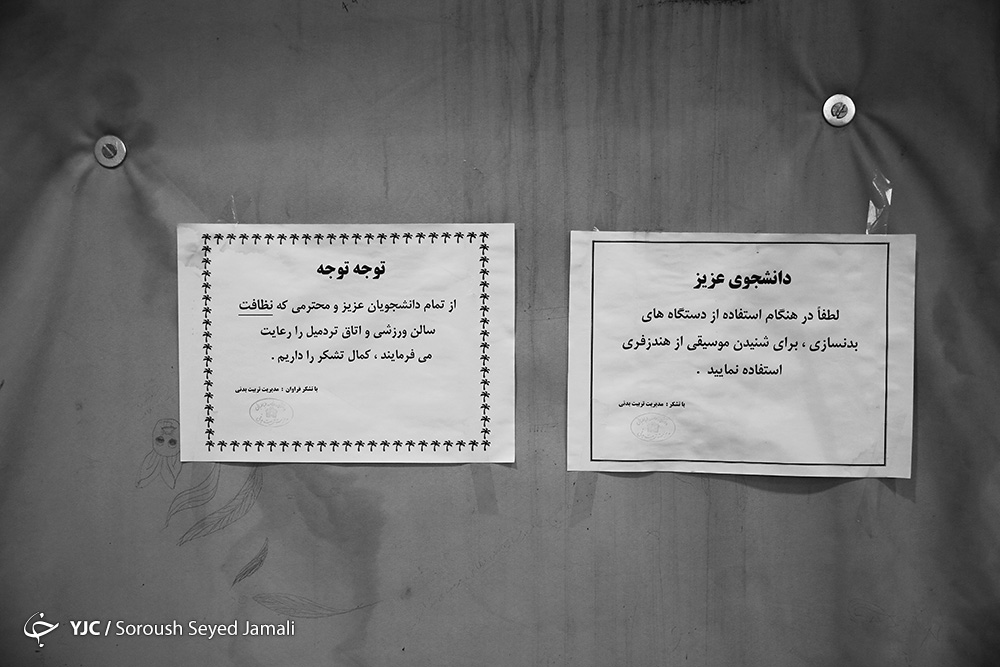 توجه توجه
از تمام دانشجویان عزیز و محترمی که نظافت
سالن ورزشی و اتاق تردمیل را رعایت
می فرمایند ، کمال تشکر را داریم .
با تشکر فراوان : مدیریت تربیت بدنی
دانشجوی عزیز
لطفاً در هنگام استفاده از دستگاه های
بدنسازی ، برای شنیدن موسیقی از هندزفری
استفاده نمایید .
با تشکر : مدیریت تربیت بدنی
YJC / Soroush Seyed Jamali